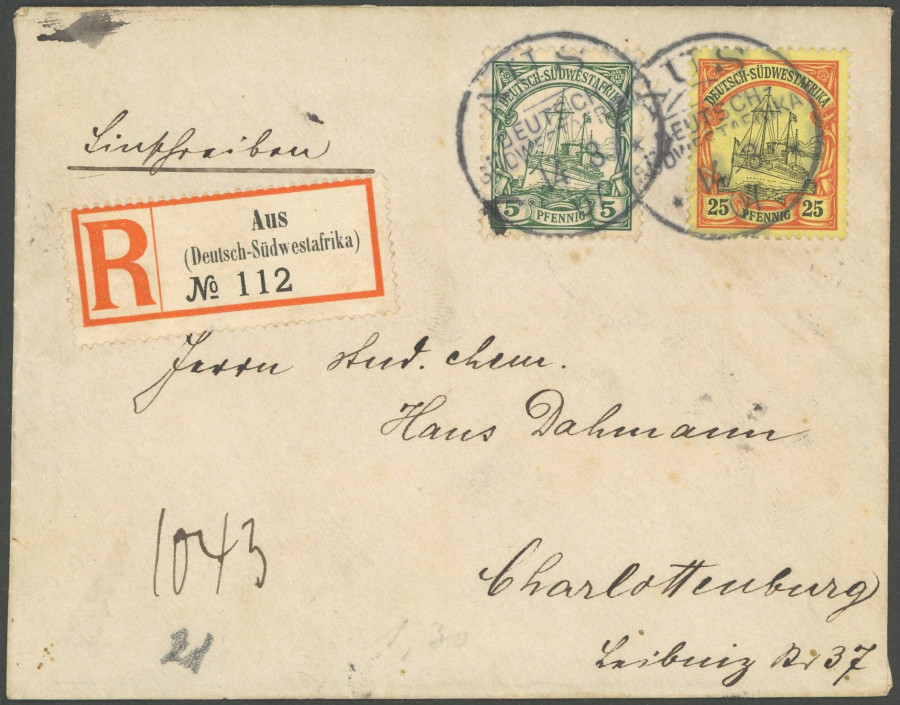 Einschreiben
R
Aus
(Deutsch-Südwestafrika)
№ 112
DEUTSCH-SÜDWESTAFRIKA
5 PFENNIG 5
DEUTSCH-SÜDWESTAFRIKA
25 PFENNIG 25
AUS
DEUTSCH-
SÜDWESTAFRIKA
14 8
AUS
DEUTSCH-
SÜDWESTAFRIKA
14 8
Herrn stud. chem.
Hans Dahmann
Charlottenburg
Leibniz Str 37
1043
21
1,30